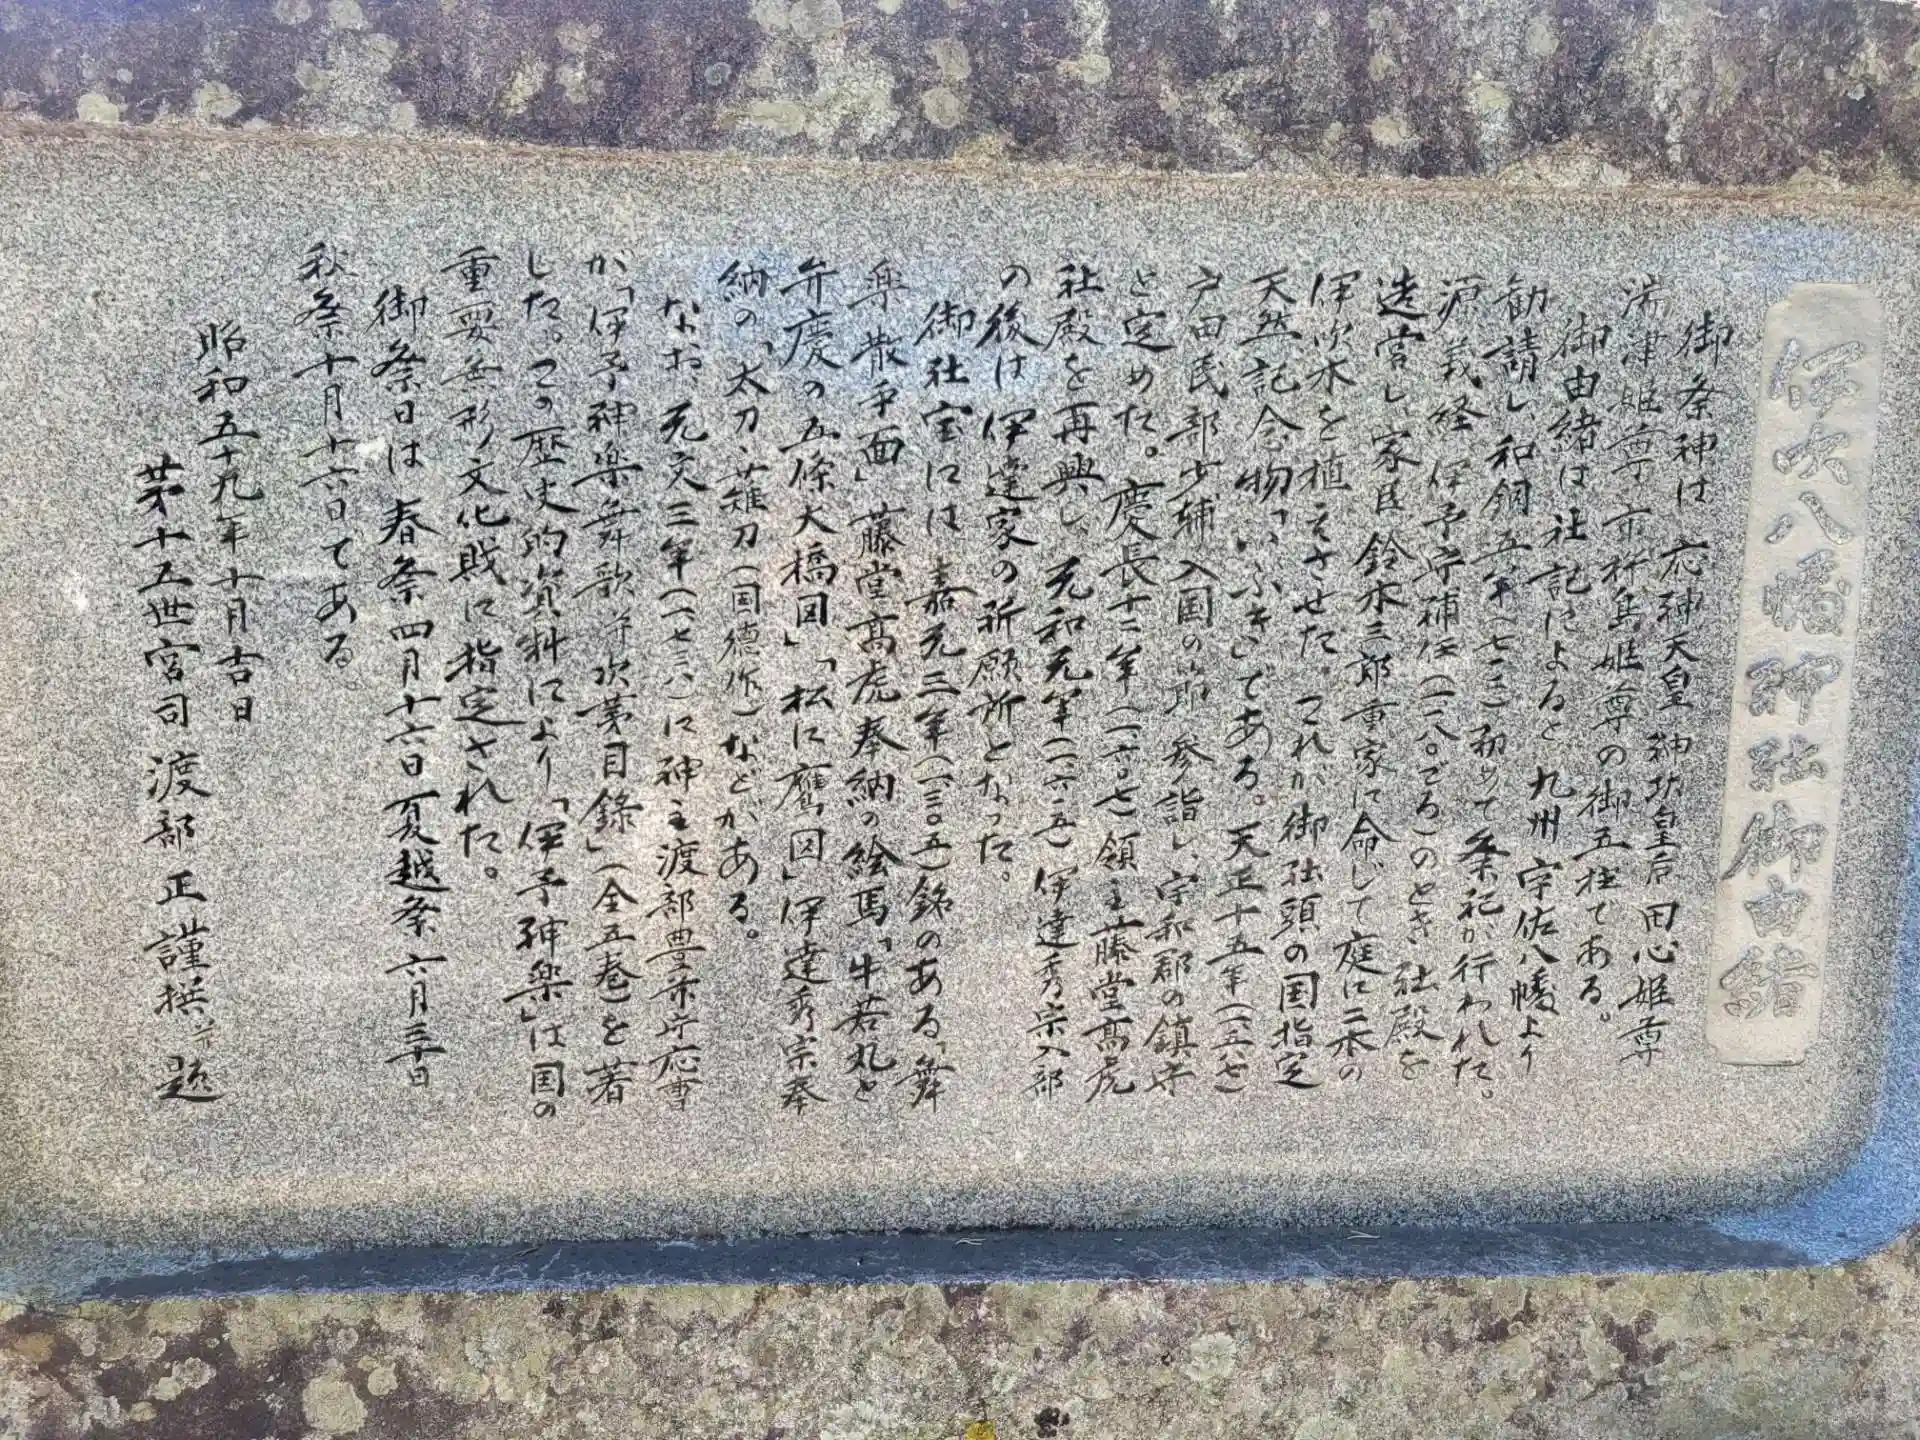 伊吹八幡神社御由緒
御祭神は 応神天皇 神功皇后 田心姫尊
湍津姫尊 市杵島姫尊の御五柱である。
御由緒は 社記によると 九州 宇佐八幡より
勧請し 和銅五年(七一二)初めて 祭祀が行われた。
源 義経 伊予守補任(一一八〇でろ)のとき 社殿を
造営し 家臣 鈴木三郎重家に命じて庭に二木の
伊吹木を植えさせた。これが御社頭の国指定
天然記念物「いぶき」である。天正十五年(一五八七)
戸田民部少輔 入国の節 参詣し 宇和郡の鎮守
と定めた。慶長十二年(一六〇七)領主藤堂高虎
社殿を再興し 元和元年(一六一五)伊達秀宗入部
の後は 伊達家の祈願所となった。
御社宝には 嘉元三年(一三〇五)銘のある「舞
楽 散手面」藤堂高虎奉納の絵馬「牛若丸と
弁慶の五條大橋図」「松に鷹図」伊達秀宗奉
納の「太刀、薙刀(国徳作)などがある。
なお、元文三年(一七三八)に神主渡部豊前守応曹
が「伊予神楽舞歌并次第目録」(全五巻)を著
した。この歴史的資料により「伊予神楽」は国の
重要無形文化財に指定された。
御祭日は 春祭四月十六日 夏越祭 六月三十日
秋祭十月十六日である。
昭和五十九年十月吉日
第十五世宮司 渡部 正 謹撰并題